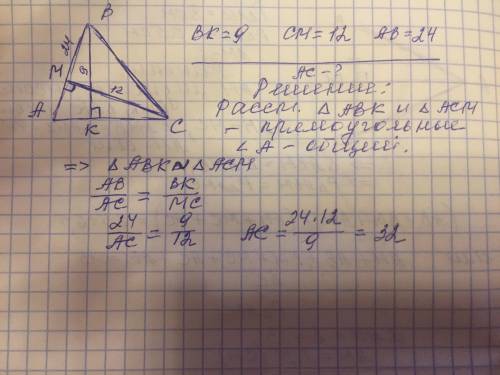 B
24
M
9
12
A
K
C
BK=9 CM=12 AB=24
AC-?
Решение:
Рассм. △ABK и △ACM
- прямоугольные
∠A - общий.
=> △ABK ∾ △ACM
AB/AC = BK/MC
24/AC = 9/12 AC = 24·12/9 = 32